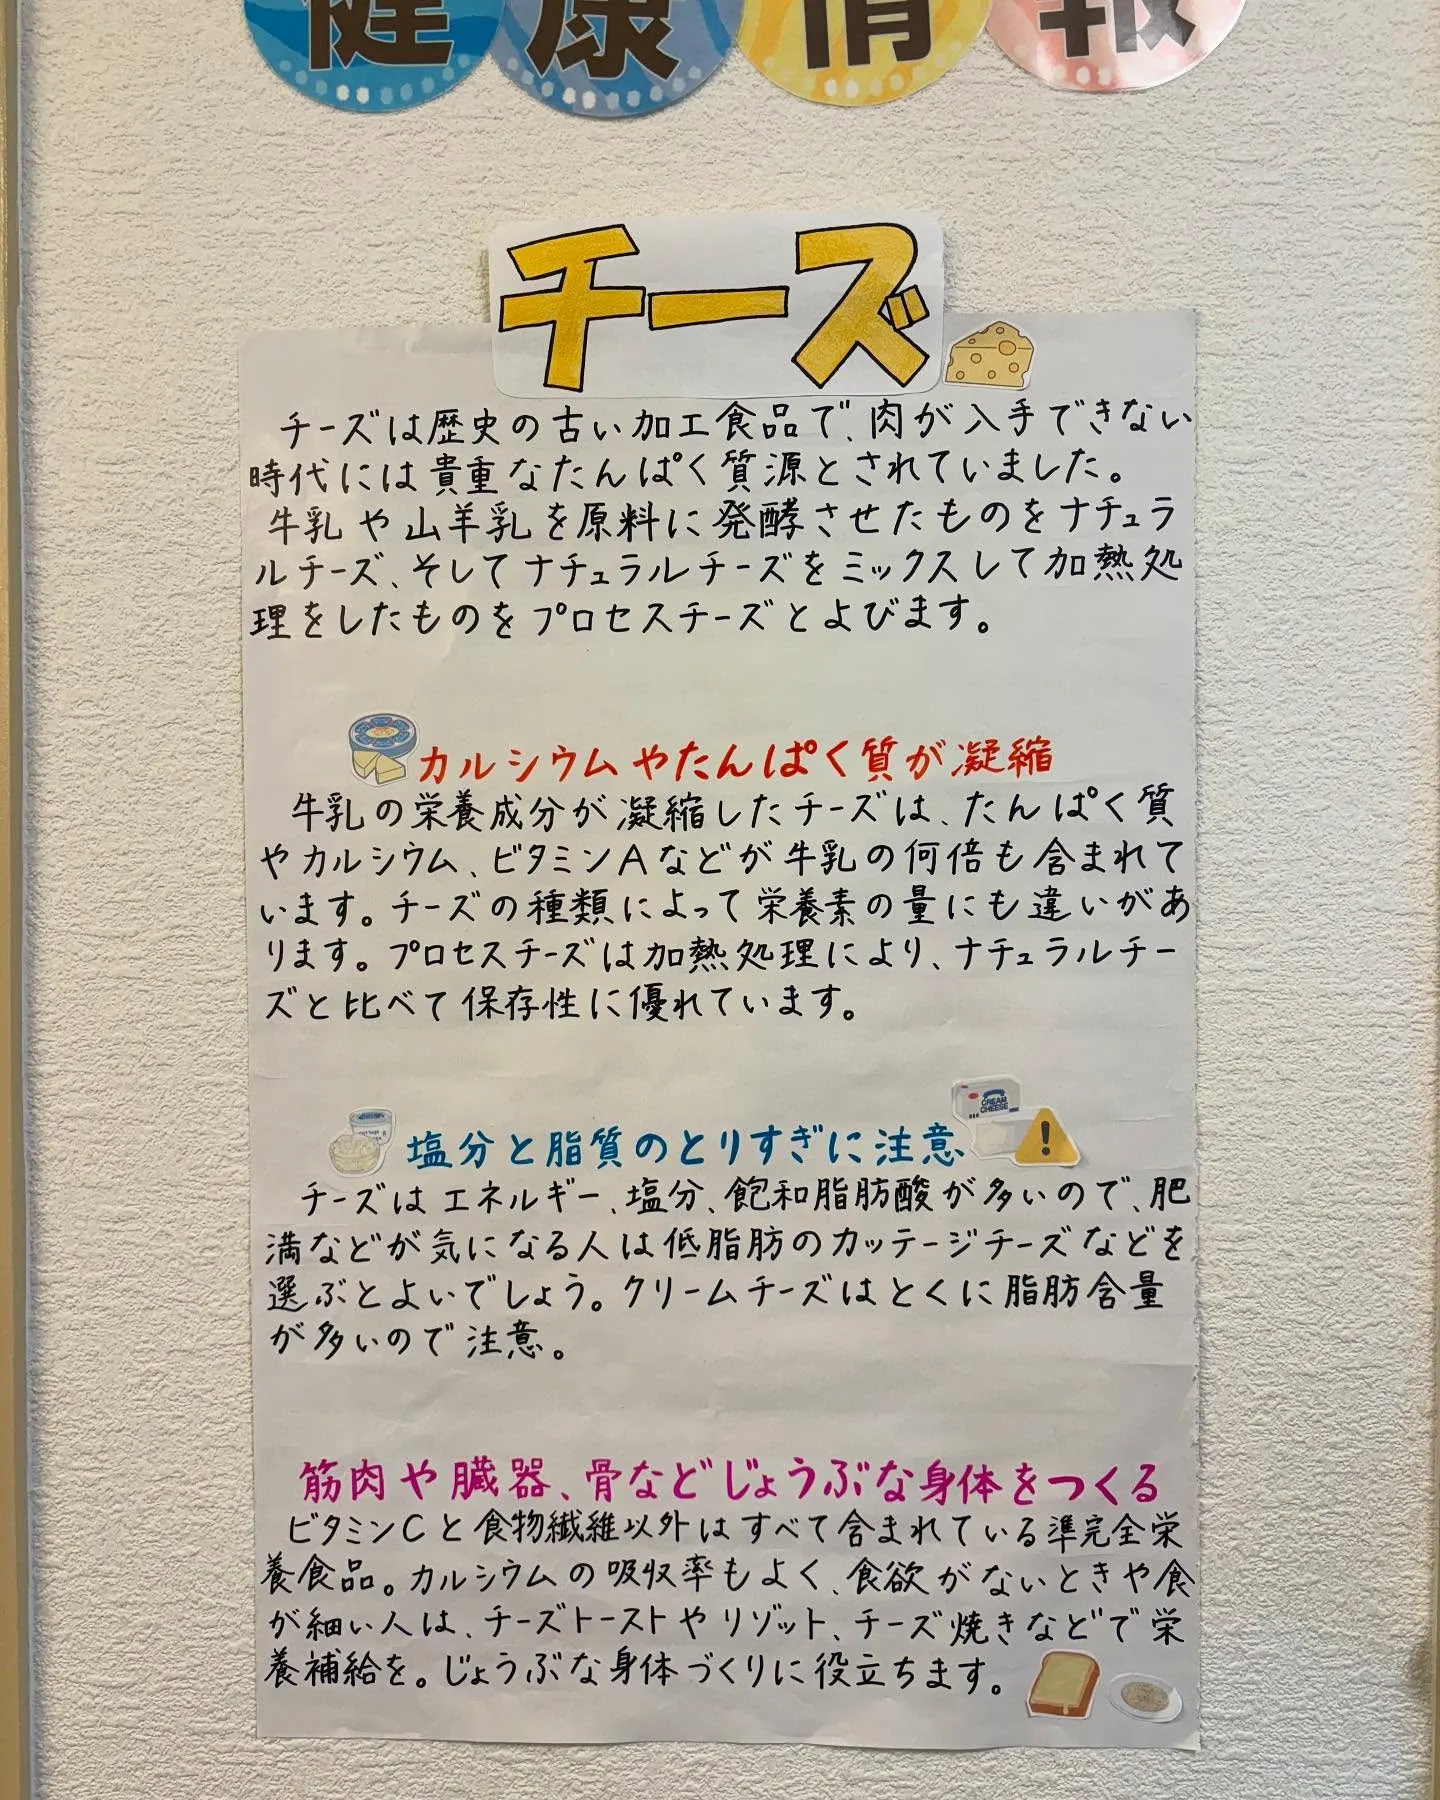 健康情報
チーズ
チーズは歴史の古い加工食品で、肉が入手できない
時代には貴重なたんぱく質源とされていました。
牛乳や山羊乳を原料に発酵させたものをナチュラ
ルチーズ、そしてナチュラルチーズをミックスして加熱処
理をしたものをプロセスチーズとよびます。
カルシウムやたんぱく質が凝縮
牛乳の栄養成分が凝縮したチーズは、たんぱく質
やカルシウム、ビタミンAなどが牛乳の何倍も含まれて
います。チーズの種類によって栄養素の量にも違いがあ
ります。プロセスチーズは加熱処理により、ナチュラルチー
ズと比べて保存性に優れています。
CREAM
CHEESE
塩分と脂質のとりすぎに注意
チーズはエネルギー、塩分、飽和脂肪酸が多いので、肥
満などが気になる人は低脂肪のカッテージチーズなどを
選ぶとよいでしょう。クリームチーズはとくに脂肪含量
が多いので注意。
筋肉や臓器、骨などじょうぶな身体をつくる
ビタミンCと食物繊維以外はすべて含まれている準完全栄
養食品。カルシウムの吸収率もよく、食欲がないときや食
が細い人は、チーズトーストやリゾット、チーズ焼きなどで栄
養補給を。じょうぶな身体づくりに役立ちます。